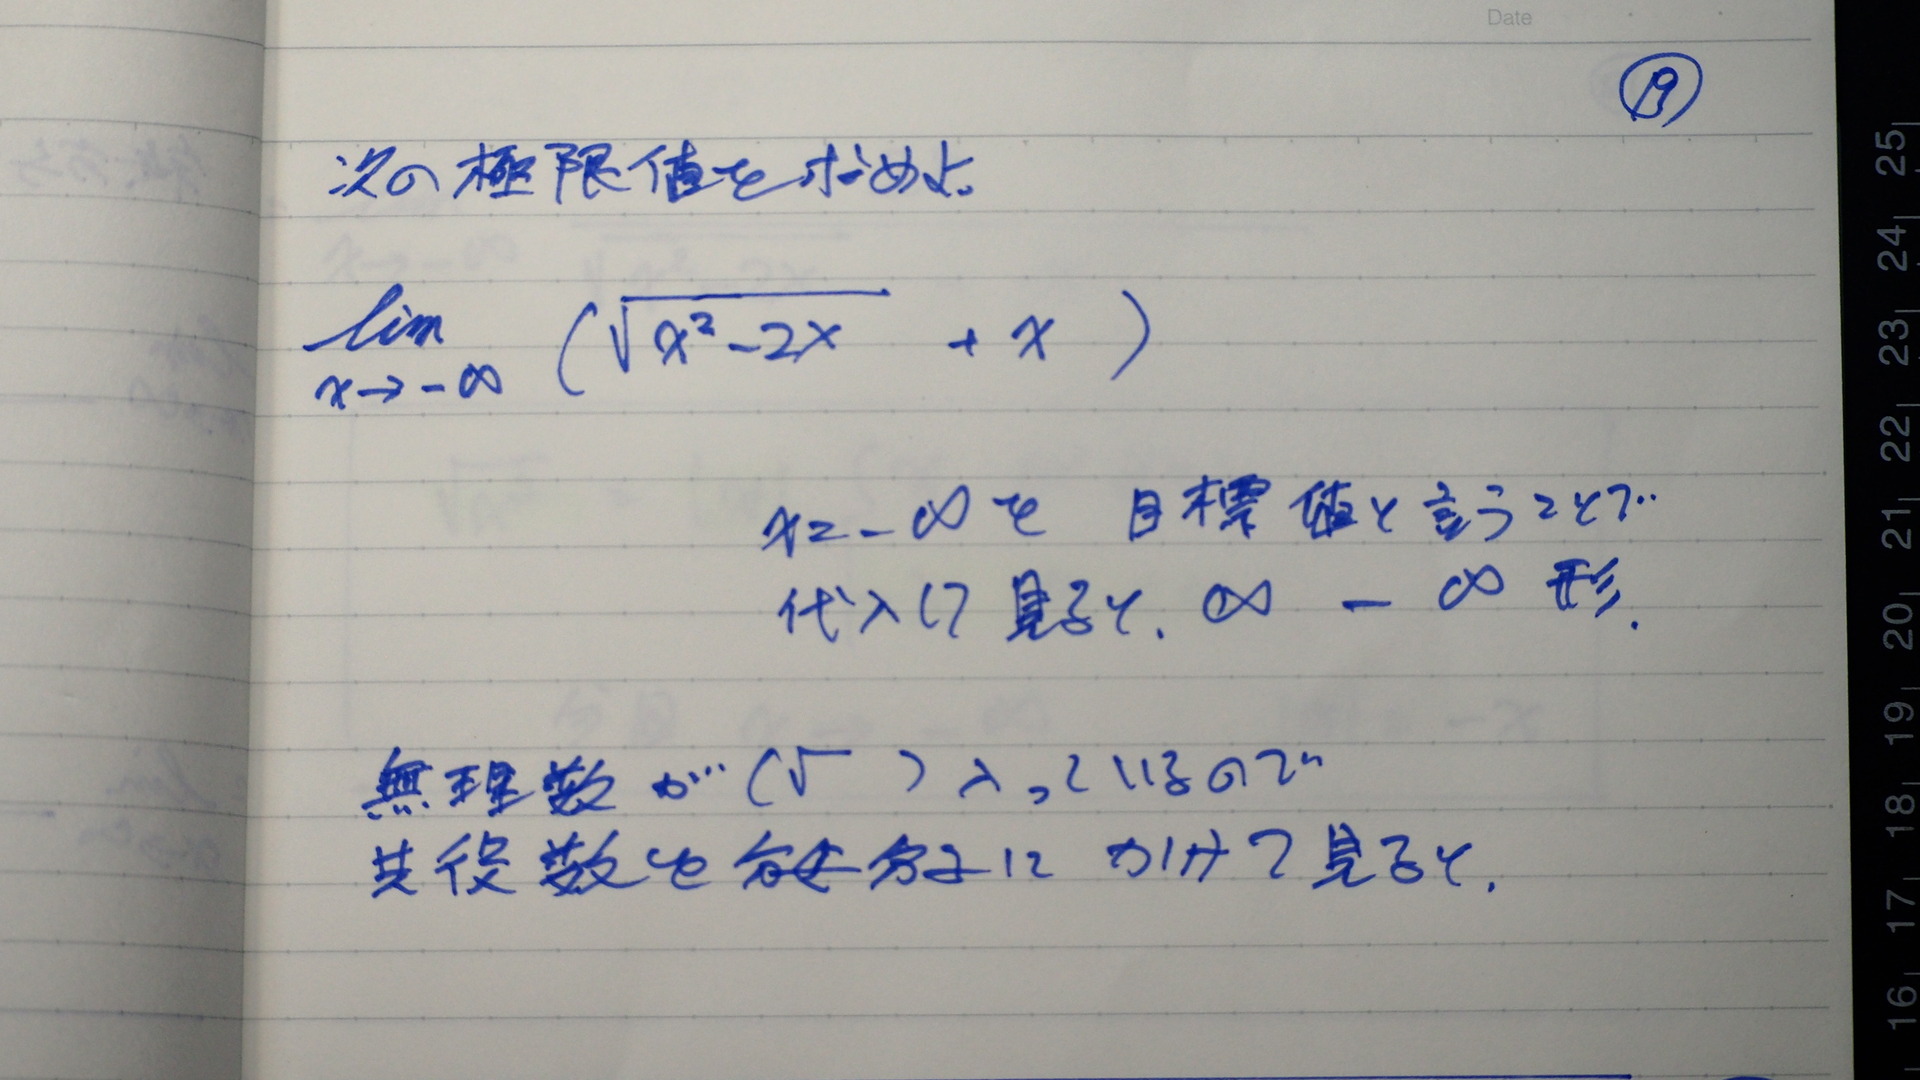 Date
⑲
次の極限値を求めよ。
lim (√x²-2x + x)
x→-∞
x=-∞を 目標値と言うことで
代入して見ると、∞ - ∞ 形.
無理数が(√ )入っているので
共役数を分母分子に かけて見ると、
25
24
23
22
21
20
19
18
17
16